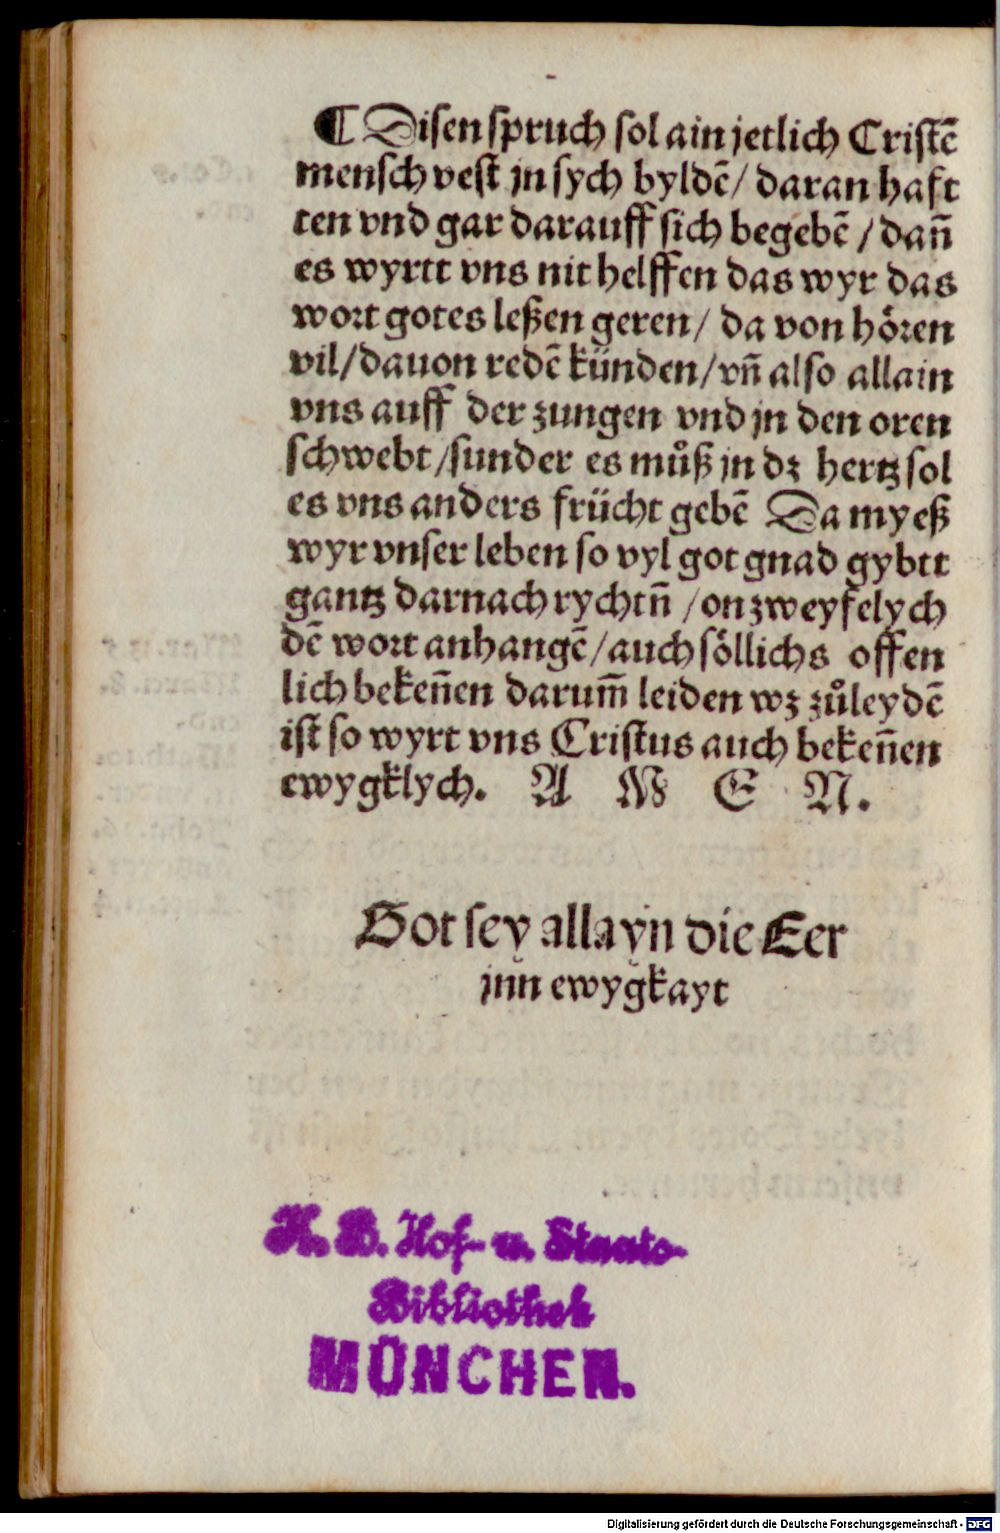 ¶ Disen spruch sol ain jetlich Cristē
mensch vest jn sych byldē/ daran haft
ten vnd gar darauff sich begebē / dañ
es wyrtt vns nit helffen das wyr das
wort gotes leßen geren/ da von hören
vil/dauon redē künden/vñ also allain
vns auff der zungen vnd jn den oren
schwebt/sunder es můß jn dz hertz sol
es vns anders frücht gebē Da my eß
wyr vnser leben so vyl got gnad gybtt
gantz darnach rychtñ /on zweyfelych
dē wort anhangē/auch söllichs offen
lich bekeñen darum̄ leiden wz zůleydē
ist so wyrt vns Cristus auch bekeñen
ewygklych. A M E N.
Got sey allayn die Eer
jnn ewygkayt
K. B. Hof- u. Staats-
Bibliothek
MÜNCHEN.
Digitalisierung gefördert durch die Deutsche Forschungsgemeinschaft - DFG